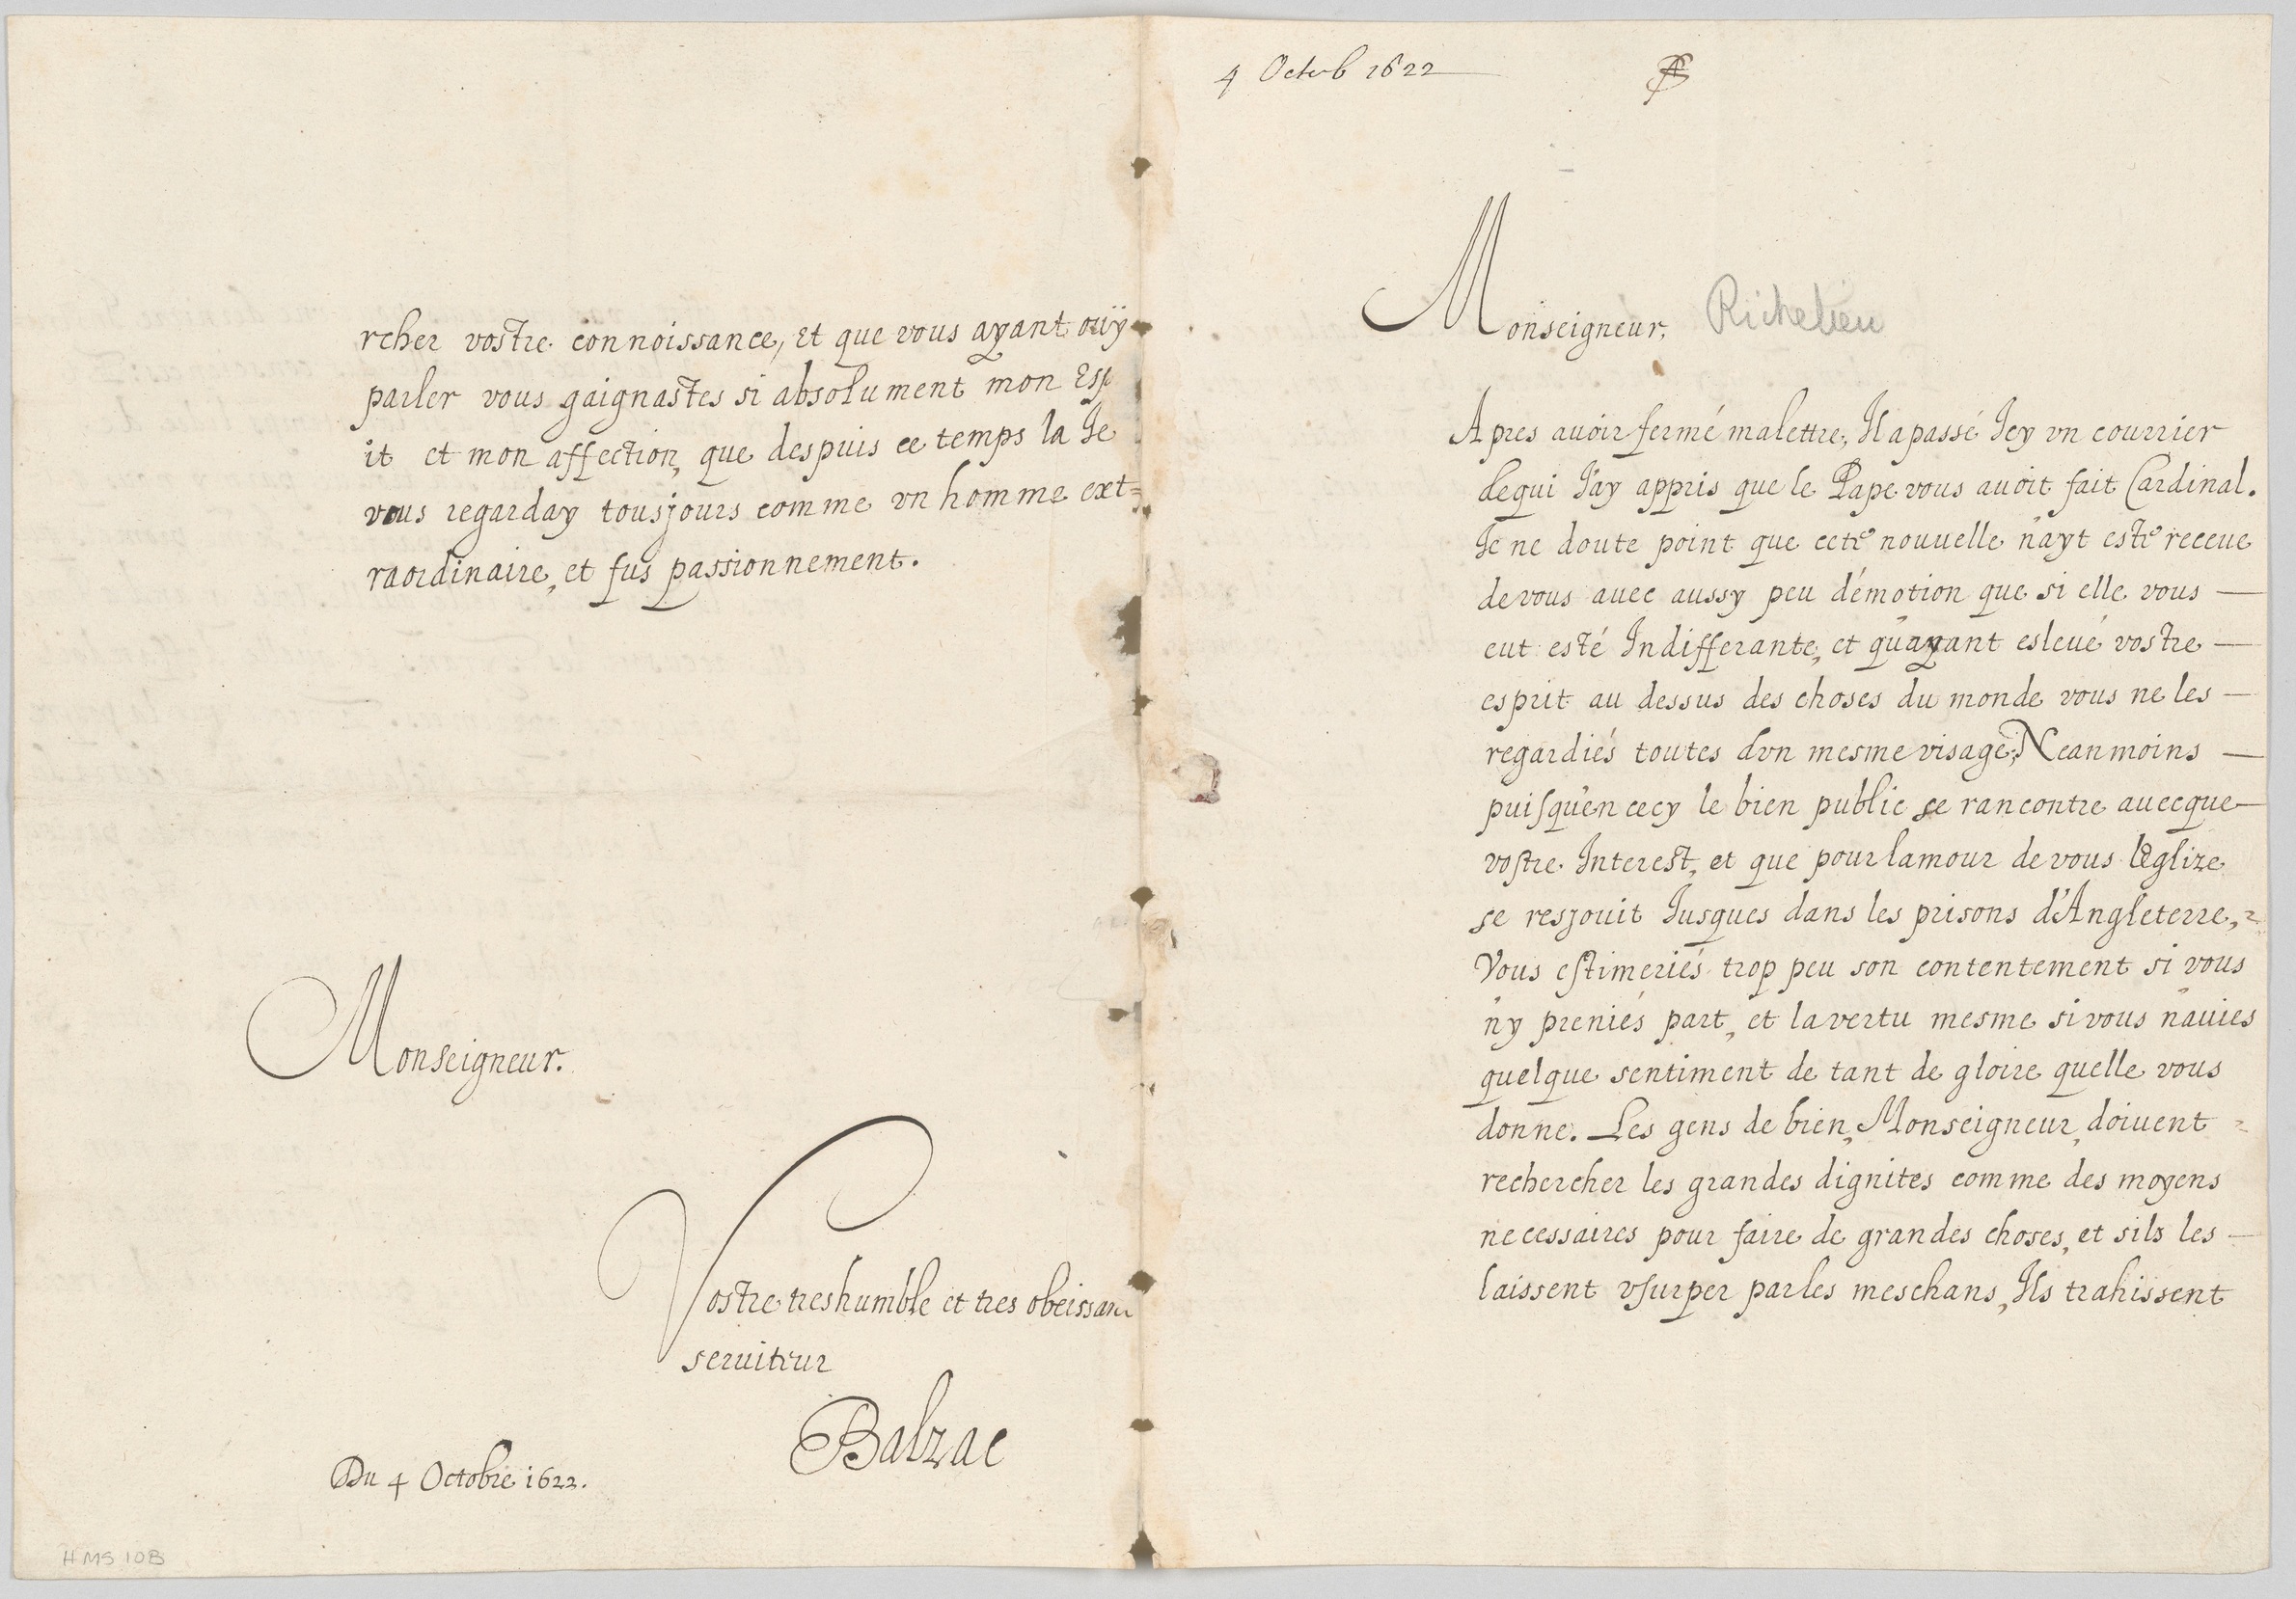 rcher vostre connoissance, et que vous ayant ouÿ
parler vous gaignastes si absolument mon Esp
it et mon affection, que despuis ce temps la Je
vous regarday tousjours comme vn homme ext=
raordinaire, et fus passionnement.
Monseigneur.
Vostre treshumble et tres obeissant
seruiteur
Balzac
Du 4 Octobre 1622.
HMS 10B
4 Octob 1622
Monseigneur, Richelieu
Apres auoir fermé malettre, Il a passé Jcy vn courrier
dequi J'ay appris que le Pape vous auoit fait Cardinal.
Je ne doute point que cete nouuelle n'ayt esté receue
de vous auec aussy peu d'émotion que si elle vous —
eut esté Indifferante, et qu'ayant esleué vostre —
esprit au dessus des choses du monde vous ne les —
regardiés toutes dvn mesme visage; Neanmoins —
puisqu'en cecy le bien public se rancontre auecque —
vostre Interest, et que pour lamour de vous l'Eglize
se resjouit Jusques dans les prisons d'Angleterre,
Vous estimeriés trop peu son contentement si vous
n'y preniés part, et la vertu mesme si vous n'auies
quelque sentiment de tant de gloire quelle vous
donne. Les gens de bien, Monseigneur, doiuent
rechercher les grandes dignites comme des moyens
necessaires pour faire de grandes choses, et sils les —
laissent vsurper par les meschans, Ils trahissent